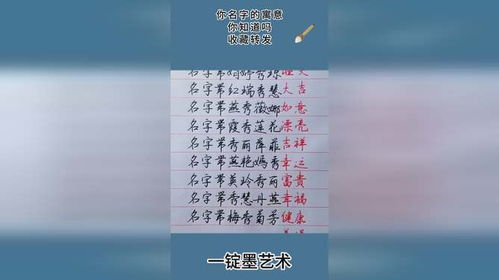 你名字的寓意
你知道吗
收藏转发
名字带红瑞秀慧大吉
名字带燕秀薇娜如意
名字带霞秀莲花漂亮
名字带秀丽萍菲吉祥
名字带燕艳嫣秀幸运
名字带英玲秀丽富贵
名字带秀慧丹燕幸福
名字带梅秀菊芳健康
一锭墨艺术